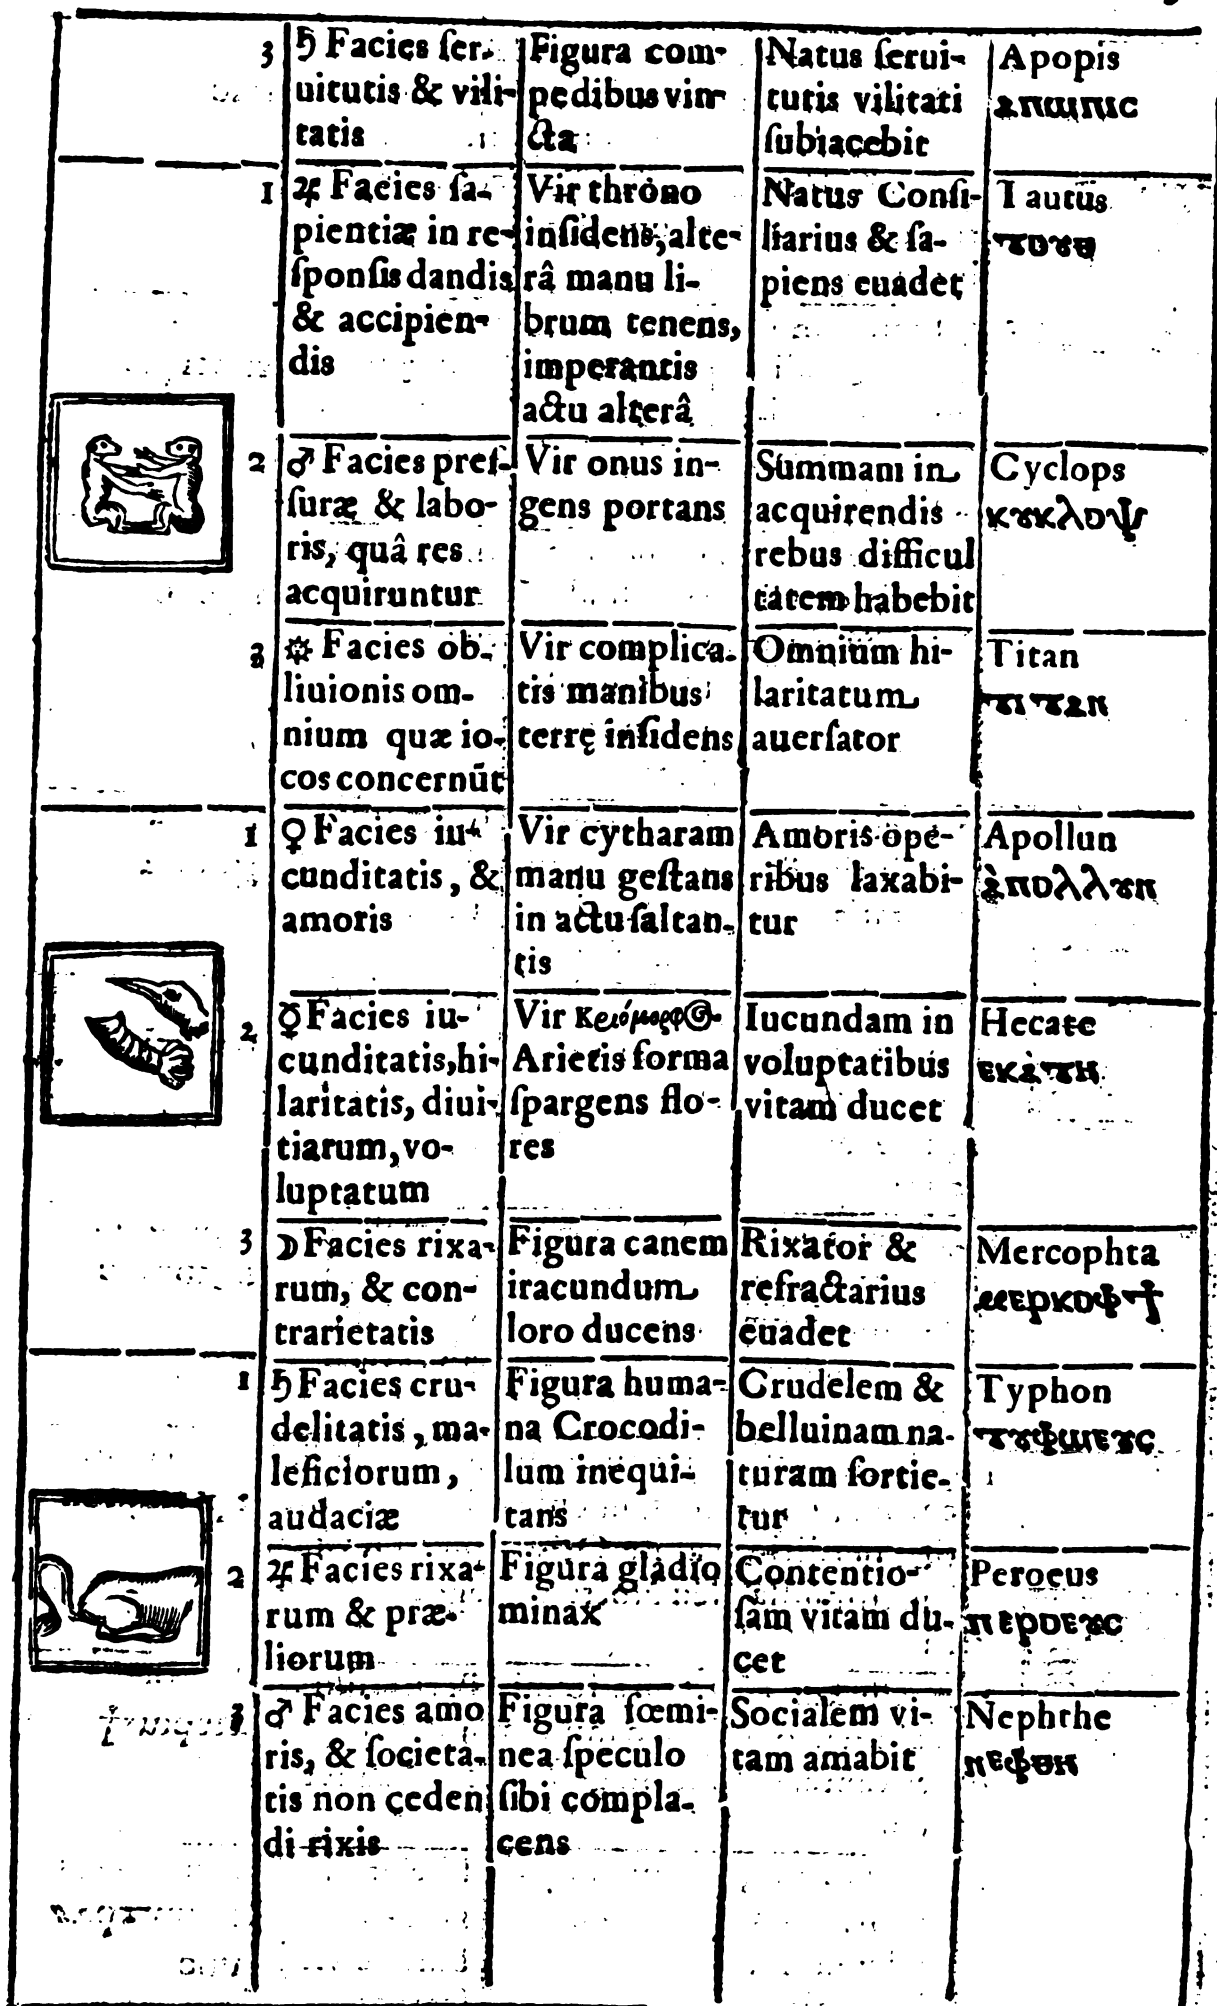 3
♄ Facies ſer-
uitutis & vili-
tatis
Figura com-
pedibus vin-
cta
Natus ſerui-
tutis vilitati
ſubiacebit
Apopis
ⲁⲡⲱⲡⲓⲥ
1
♃ Facies ſa-
pientiæ in re-
ſponſis dandis
& accipien-
dis
Vir throno
inſidens, alte-
râ manu li-
brum tenens,
imperantis
actu alterâ
Natus Conſi-
liarius & ſa-
piens euadet
Tautus
ⲧⲟⲩⲑ
2
♂ Facies preſ-
ſuræ & labo-
ris, quâ res
acquiruntur
Vir onus in-
gens portans
Summam in
acquirendis
rebus difficul
tatem habebit
Cyclops
ⲕⲩⲕⲗⲟⲯ
3
☼ Facies ob-
liuionis om-
nium quæ io-
cos concernũt
Vir complica-
tis manibus
terrę inſidens
Omnium hi-
laritatum
auerſator
Titan
ⲧⲓⲧⲁⲛ
1
♀ Facies iu-
cunditatis, &
amoris
Vir cytharam
manu geſtans
in actu ſaltan-
tis
Amoris ope-
ribus laxabi-
tur
Apollun
ⲁ̀ⲡⲟⲗⲗⲩⲛ
2
☿ Facies iu-
cunditatis, hi-
laritatis, diui-
tiarum, vo-
luptatum
Vir κριόμορφος
Arietis forma
ſpargens flo-
res
Iucundam in
voluptatibus
vitam ducet
Hecate
ⲉⲕⲁ̀ⲧⲏ
3
☽ Facies rixa-
rum, & con-
trarietatis
Figura canem
iracundum
loro ducens
Rixator &
refractarius
euadet
Mercophta
ⲙⲉⲣⲕⲟⲫⲧ
1
♄ Facies cru-
delitatis, ma-
leficiorum,
audaciæ
Figura huma-
na Crocodi-
lum inequi-
tans
Crudelem &
belluinam na-
turam ſortie-
tur
Typhon
ⲧⲩⲫⲱⲉⲩⲥ
2
♃ Facies rixa-
rum & præ-
liorum
Figura gladio
minax
Contentio-
ſam vitam du-
cet
Peroeus
ⲡⲉⲣⲟⲉⲩⲥ
3
♂ Facies amo
ris, & ſocieta-
tis non ceden
di rixis
Figura fœmi-
nea ſpeculo
ſibi compla-
cens
Socialem vi-
tam amabit
Nephthe
ⲛⲉⲫⲑⲏ